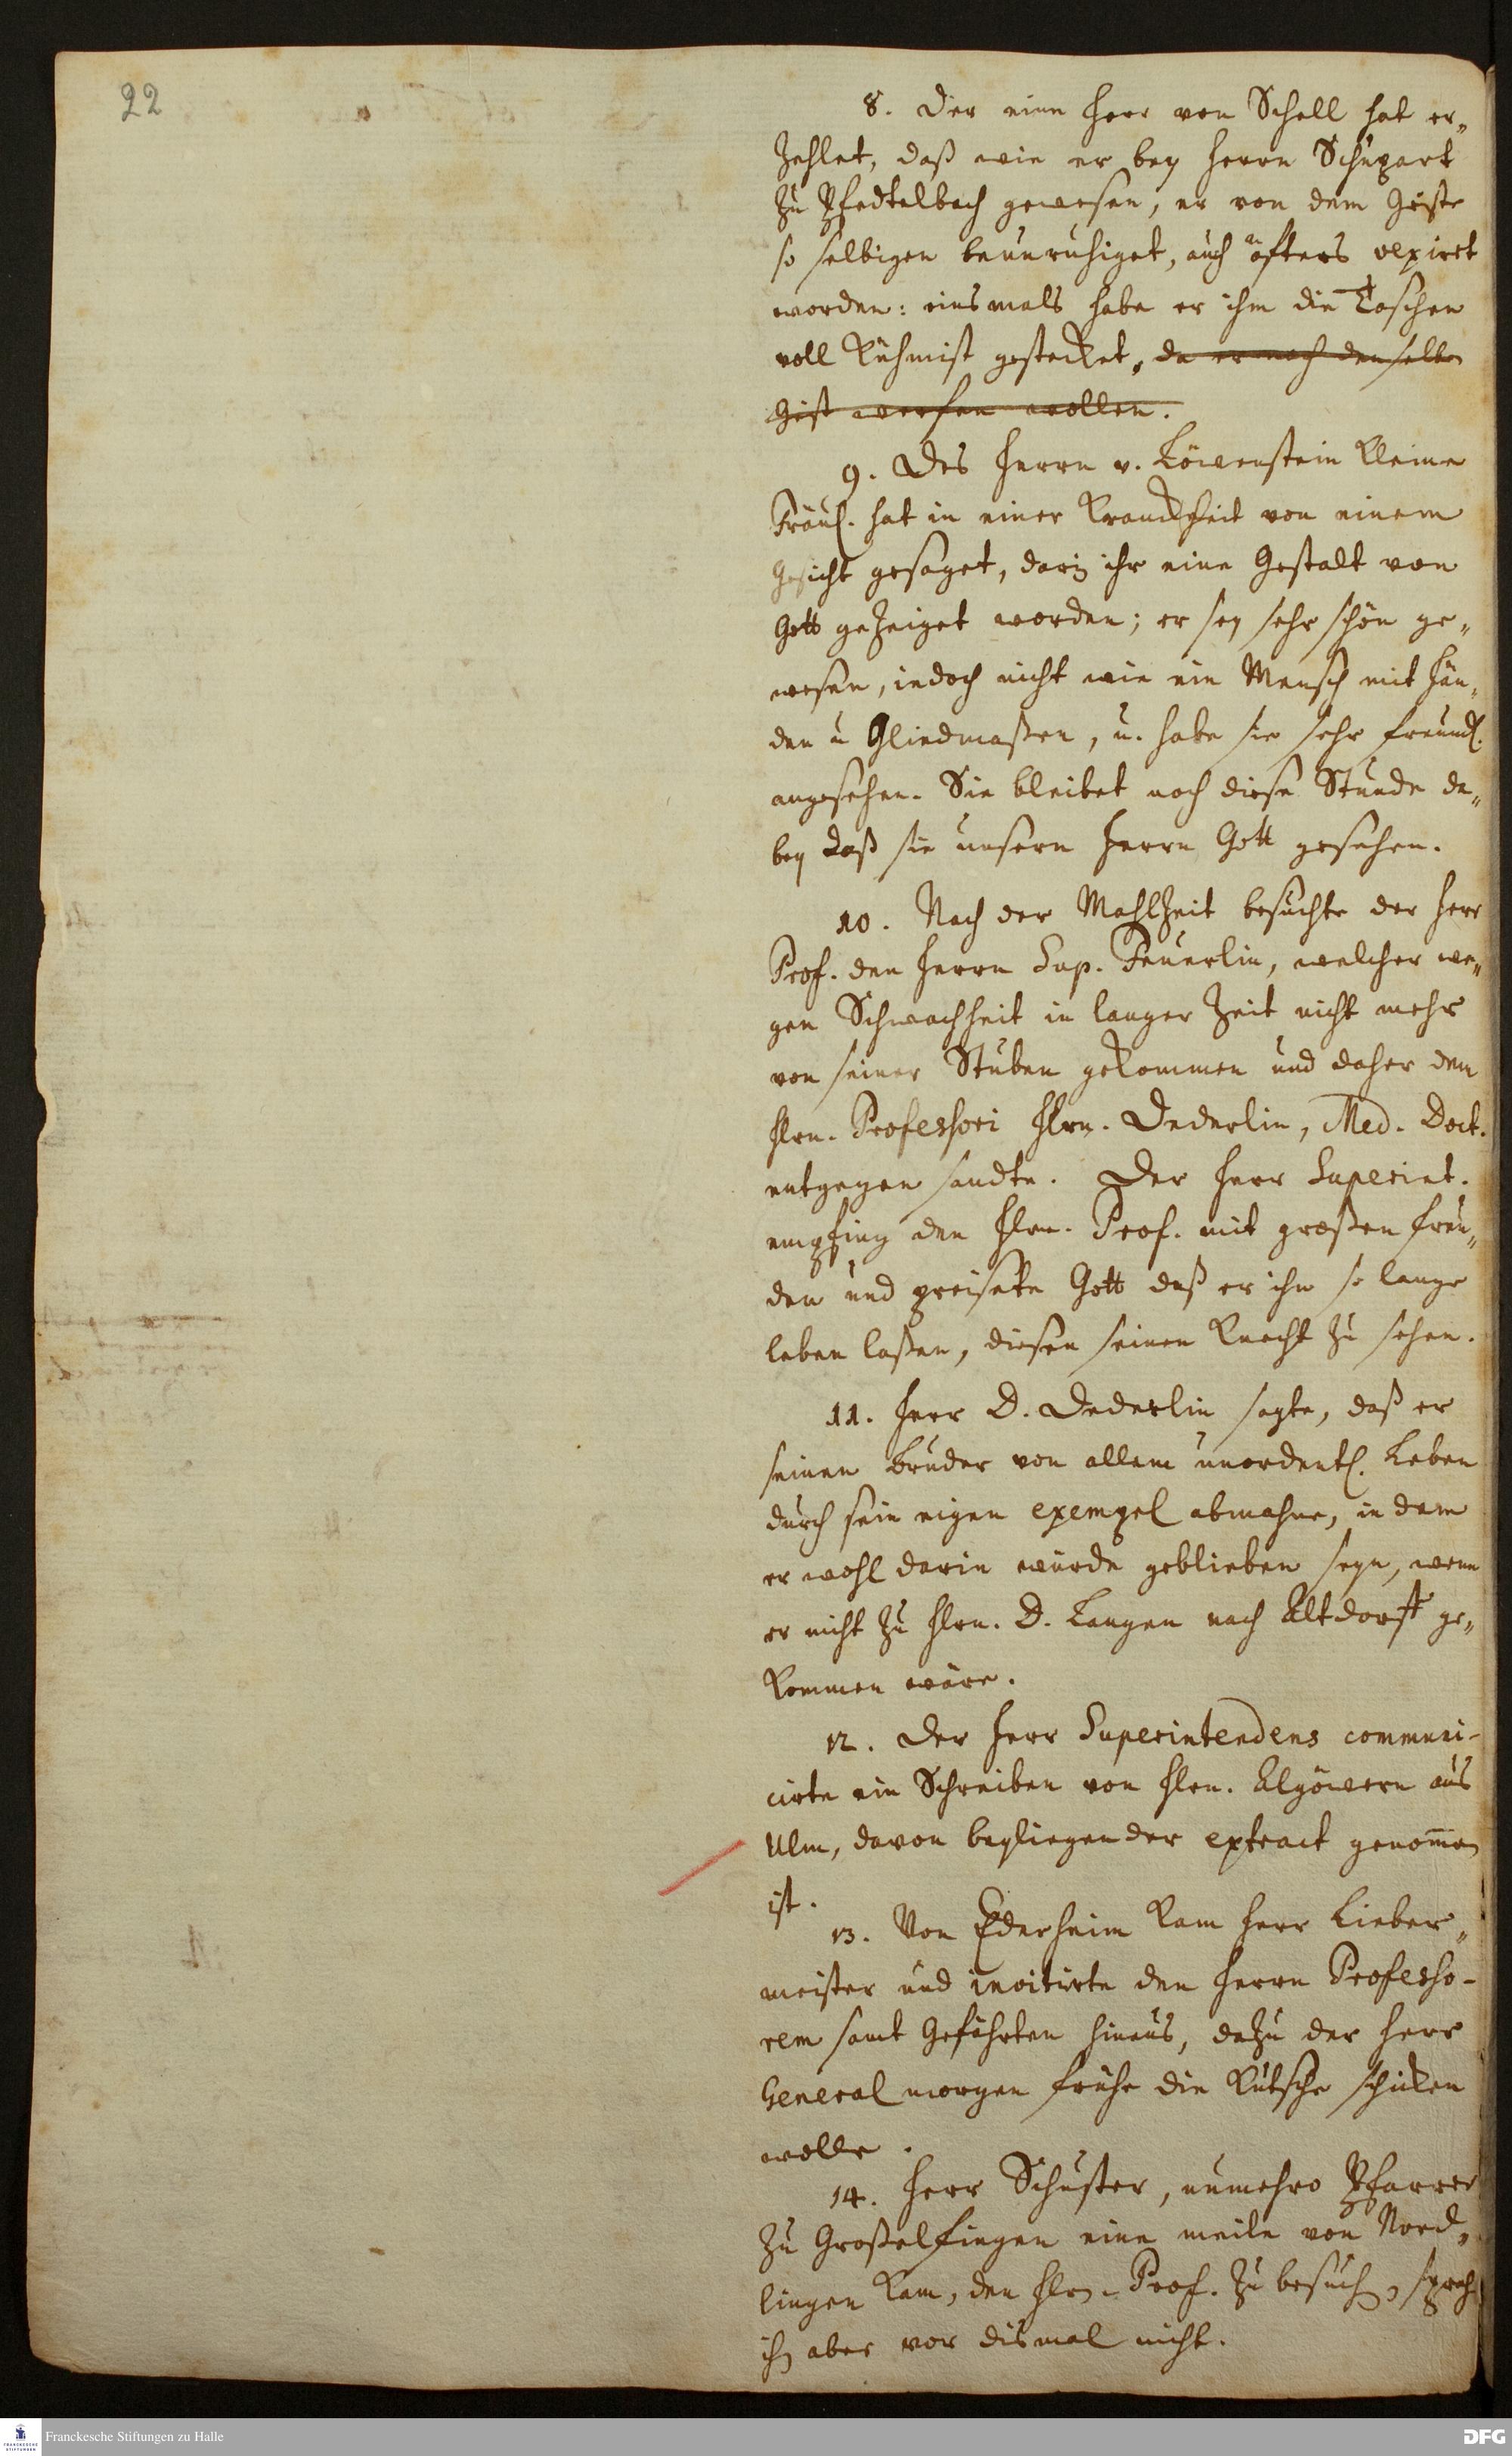 22
8. Der eine Herr von Schell hat er„
zehlet, daß wie er bey Herrn Schupart
zu Pfedelbach gewesen, er von dem Geiste
so selbigen beunruhiget, auch öfters vexiret
worden: einsmals habe er ihm die Taschen
voll Kuhmist gestecket, da er nach demselben
Geist werfen wollen.
9. Des Herrn v. Löwenstein kleine
Fräul. hat in einer Kranckheit von einem
Gesicht gesaget, darin ihr eine Gestalt von
Gott gezeiget worden; er sey sehr schön ge„
wesen, iedoch nicht wie ein Mensch mit Hän„
den u Gliedmaßen, u. habe sie sehr freundl.
angesehen. Sie bleibet noch diese Stunde da„
bey daß sie unsern Herrn Gott gesehen.
10. Nach der Mahlzeit besuchte der Herr
Prof. den Herrn Sup. Feuerlin, welcher we„
gen Schwachheit in langer Zeit nicht mehr
von seiner Stuben gekommen und daher dem
Hrn. Professori Hrn. Dederlin, Med. Doct.
entgegen sandte. Der Herr Superint.
empfing den Hrn. Prof. mit großen Freu„
den und preisete Gott daß er ihn so lange
leben laßen, diesen seinen Knecht zu sehen.
11. Herr D. Dederlin sagte, daß er
seinen Bruder von allem unordentl. Leben
durch sein eigen exempel abmahne, in dem
er wohl darin würde geblieben seyn, wenn
er nicht zu Hrn. D. Langen nach Altdorff ge„
kommen wäre.
12. Der Herr Superintendens communi-
cirte ein Schreiben von Hrn. Algöwern aus
Ulm, davon beyliegender extract genommen
ist.
13. Von Ederheim kam Herr Lieber„
meister und invitirte den Herrn Professo-
rem samt Gefährten hinaus, dazu der Herr
General morgen frühe die Kutsche schicken
wolle.
14. Herr Schuster, numehro Pfarrer
zu Großelfingen eine meile von Nörd„
lingen kam, den Hrn. Prof. zu besuchen, sprach
ihn aber vor dismal nicht.
Franckesche Stiftungen zu Halle
DFG